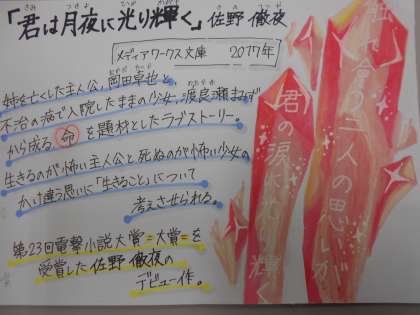 「君は月夜に光り輝く」佐野 徹夜
メディアワークス文庫 2017年
姉を亡くした主人公、岡田卓也と、
不治の病で入院したままの少女、渡良瀬まみず
から成る 命 を題材としたラブストーリー。
生きるのが怖い主人公と死ぬのが怖い少女の
かけ違う思いに「生きること」について
考えさせられる。
第23回電撃小説大賞=大賞=を
受賞した佐野 徹夜の
デビュー作。
触れ合う二人の思いが
君の涙に光り輝く